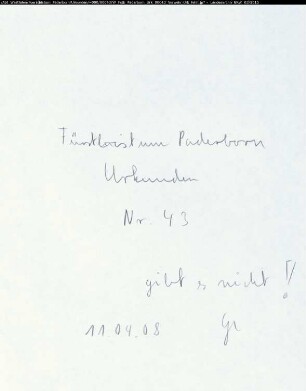 Fürstbistum Paderborn
Urkunden
Nr. 43
gibt es nicht!
11.04.08 Gr